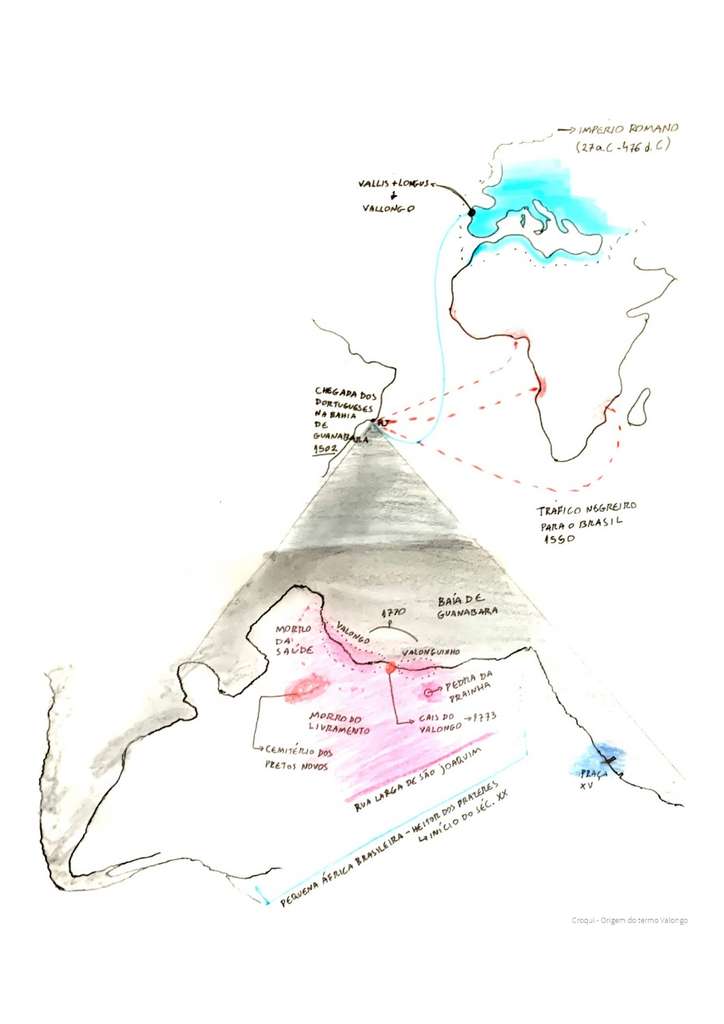 → IMPERIO ROMANO
(27 a.C - 476 d.C)
VALLIS + LONGUS
VALLONGO
CHEGADA DOS
PORTUGUESES
NA BAHIA
DE
GUANABARA
1502
TRÁFICO NEGREIRO
PARA O BRASIL
1550
1770
BAÍA DE
GUANABARA
VALONGO
MORRO
DA
SAÚDE
VALONGUINHO
PEDRA DA
PRAINHA
MORRO DO
LIVRAMENTO
CAIS DO
VALONGO → 1773
CEMITÉRIO DOS
PRETOS NOVOS
RUA LARGA DE SÃO JOAQUIM
PRAÇA
XV
PEQUENA ÁFRICA BRASILEIRA - HEITOR DOS PRAZERES
↳ INÍCIO DO SÉC. XX
Croqui - Origem do termo Valongo